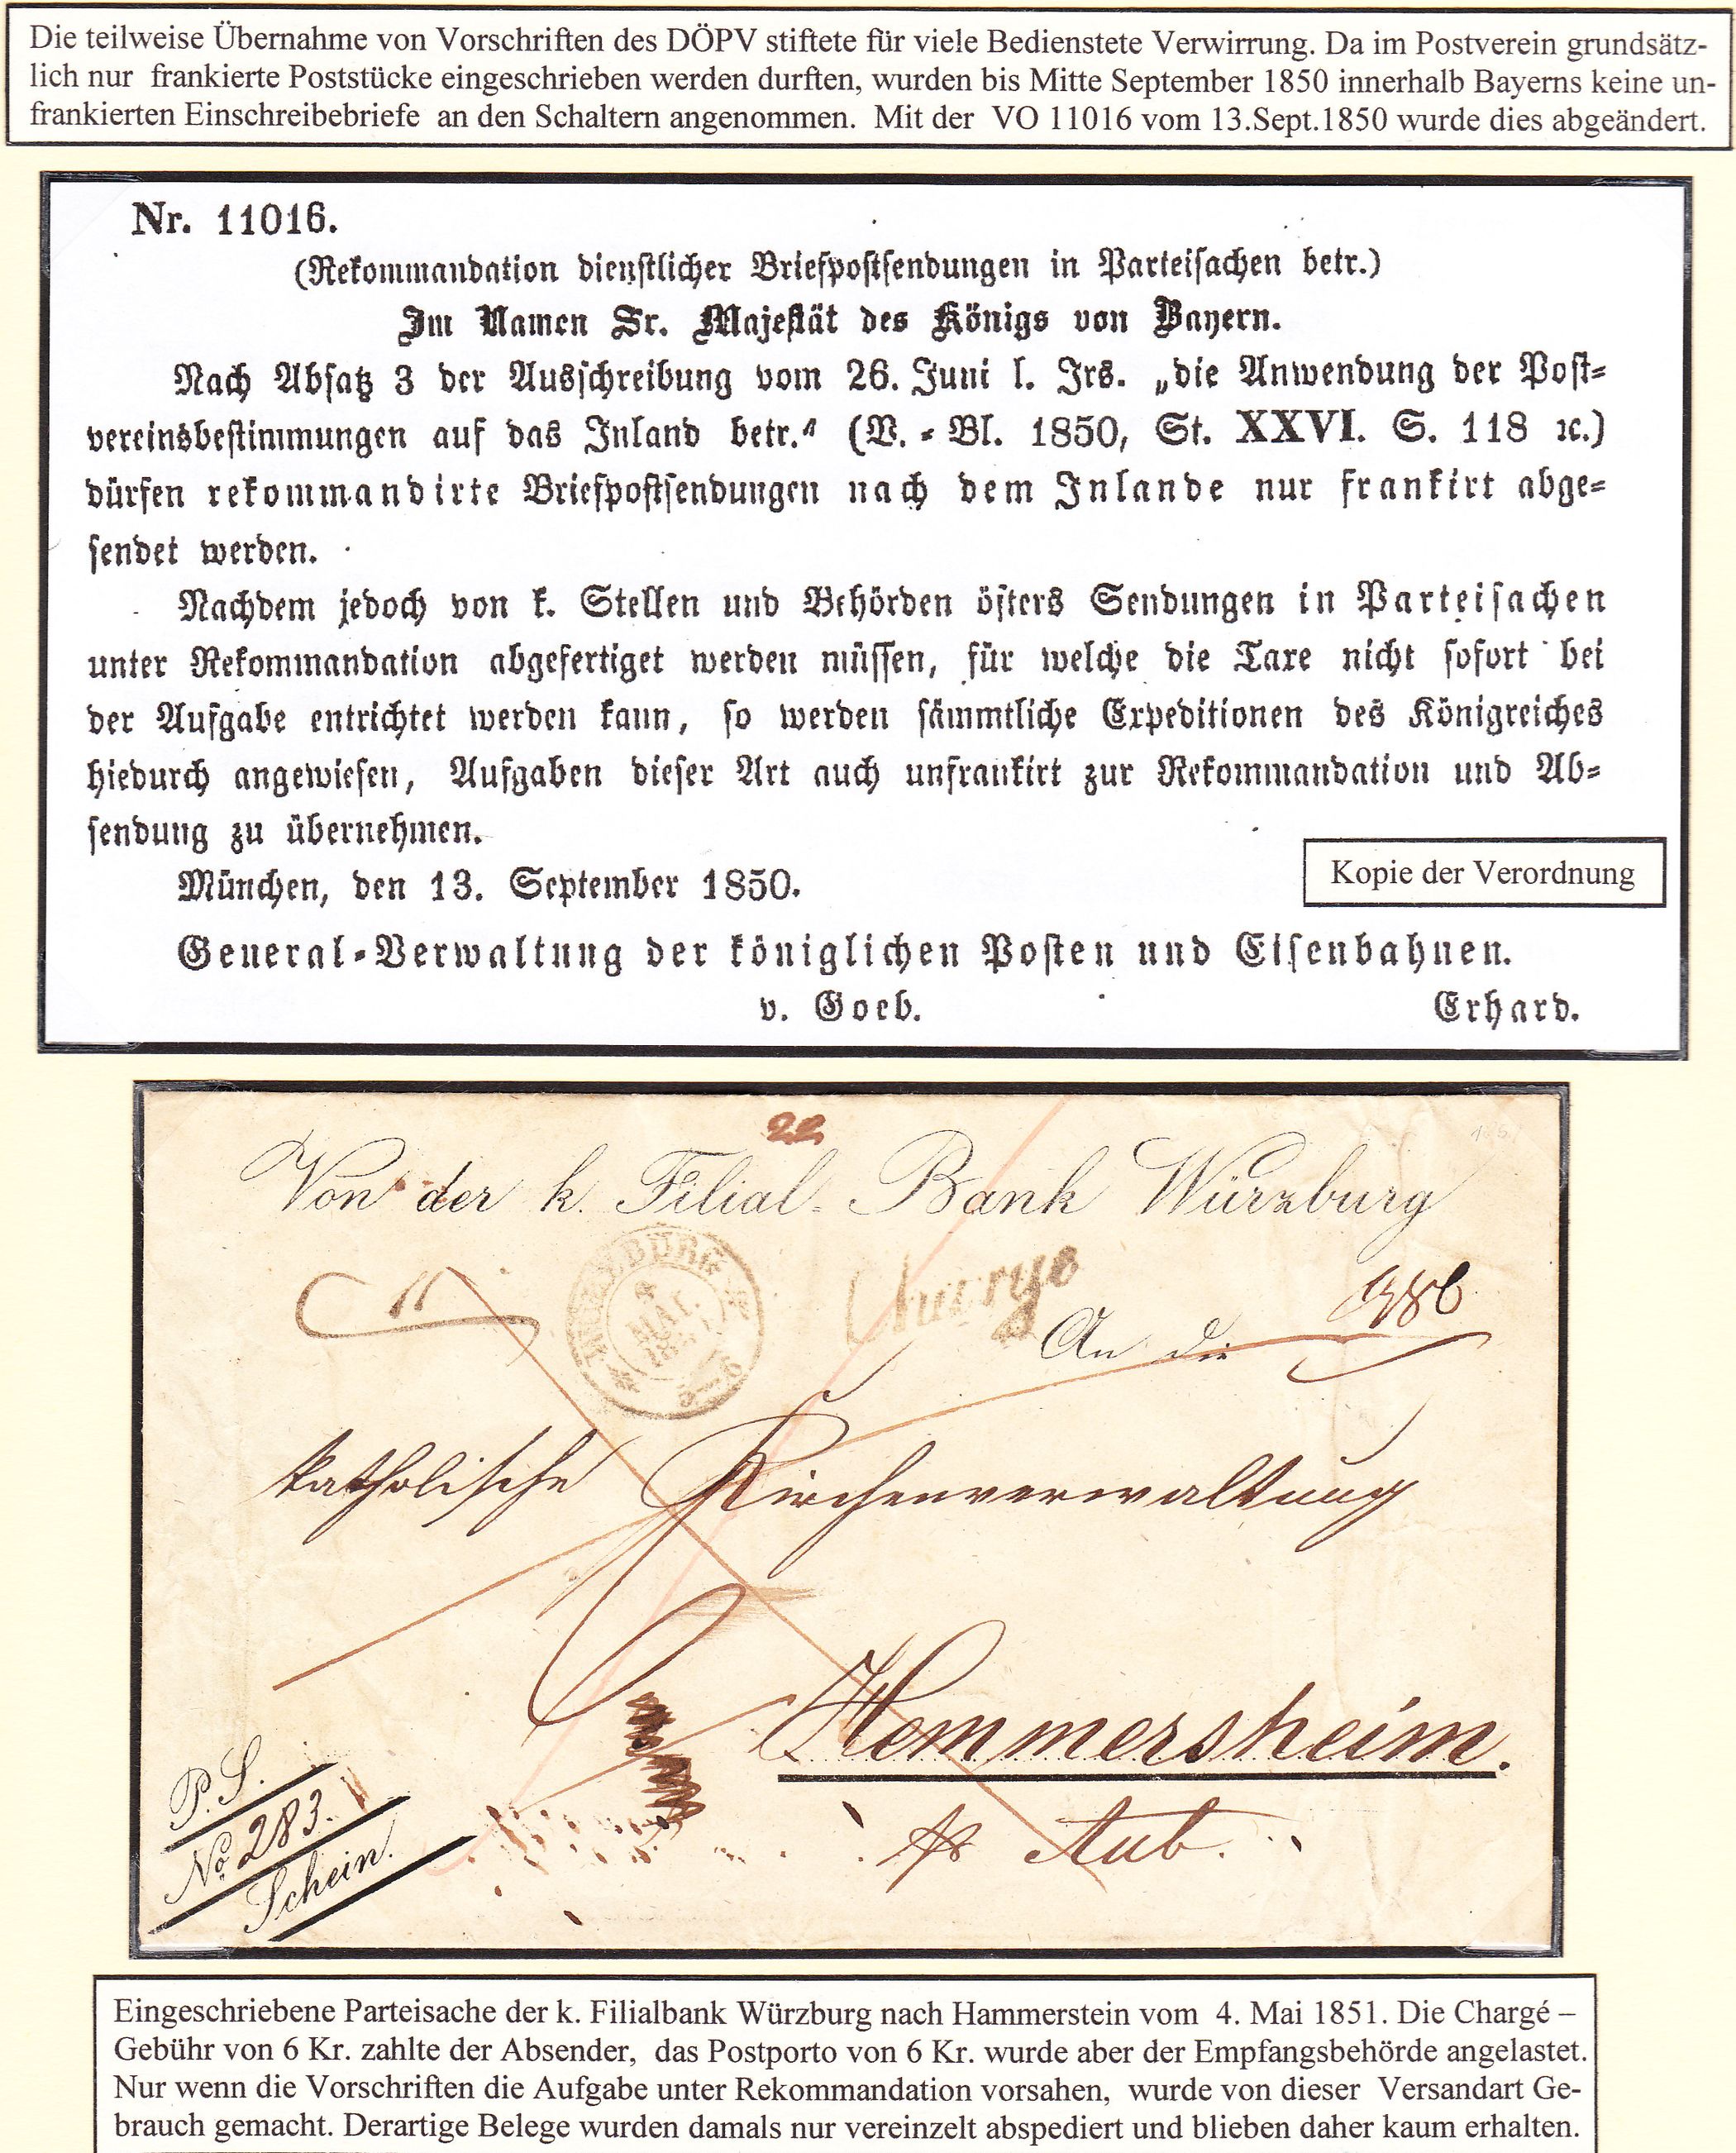 Die teilweise Übernahme von Vorschriften des DÖPV stiftete für viele Bedienstete Verwirrung. Da im Postverein grundsätz-
lich nur frankierte Poststücke eingeschrieben werden durften, wurden bis Mitte September 1850 innerhalb Bayerns keine un-
frankierten Einschreibebriefe an den Schaltern angenommen. Mit der VO 11016 vom 13.Sept.1850 wurde dies abgeändert.
Nr. 11016.
(Rekommandation dienstlicher Briefpostsendungen in Parteisachen betr.)
Im Namen Sr. Majestät des Königs von Bayern.
Nach Absatz 3 der Ausschreibung vom 26. Juni l. Irs. „die Anwendung der Post-
vereinsbestimmungen auf das Inland betr.“ (V.-Bl. 1850, St. XXVI. S. 118 ꝛc.)
dürfen rekommandirte Briefpostsendungen nach dem Inlande nur frankirt abge-
sendet werden.
Nachdem jedoch von k. Stellen und Behörden öfters Sendungen in Parteisachen
unter Rekommandation abgefertiget werden müssen, für welche die Taxe nicht sofort bei
der Aufgabe entrichtet werden kann, so werden sämmtliche Expeditionen des Königreiches
hiedurch angewiesen, Aufgaben dieser Art auch unfrankirt zur Rekommandation und Ab-
sendung zu übernehmen.
München, den 13. September 1850.
Kopie der Verordnung
General-Verwaltung der königlichen Posten und Eisenbahnen.
v. Goeb. Erhard.
22
Von der k. Filial-Bank Würzburg
WÜRZBURG
4
MAI
1851
5-6
Chargé
986
An die
katholische Kirchenverwaltung
6
Hemmersheim.
Aub.
P. S.
No 283.
Schein.
Eingeschriebene Parteisache der k. Filialbank Würzburg nach Hammerstein vom 4. Mai 1851. Die Chargé –
Gebühr von 6 Kr. zahlte der Absender, das Postporto von 6 Kr. wurde aber der Empfangsbehörde angelastet.
Nur wenn die Vorschriften die Aufgabe unter Rekommandation vorsahen, wurde von dieser Versandart Ge-
brauch gemacht. Derartige Belege wurden damals nur vereinzelt abspediert und blieben daher kaum erhalten.